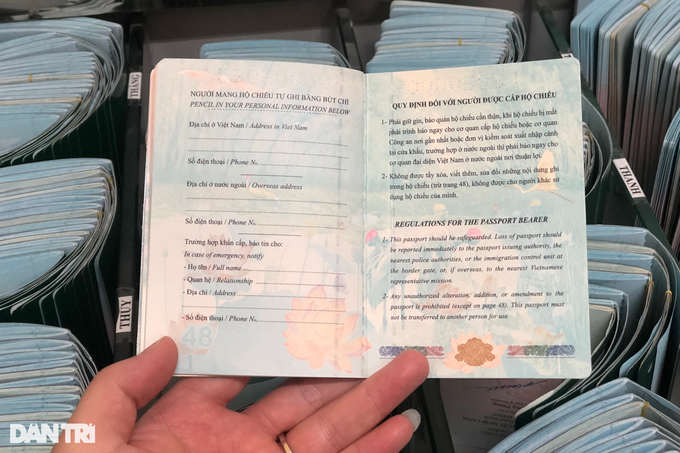 NGƯỜI MANG HỘ CHIẾU TỰ GHI BẰNG BÚT CHÌ
PENCIL IN YOUR PERSONAL INFORMATION BELOW
Địa chỉ ở Việt Nam / Address in Viet Nam
Số điện thoại / Phone No.
Địa chỉ ở nước ngoài / Overseas address
Số điện thoại / Phone No.
Trường hợp khẩn cấp, báo tin cho:
In case of emergency, notify
- Họ tên / Full name
- Quan hệ / Relationship
- Địa chỉ / Address
- Số điện thoại / Phone No.
48
QUY ĐỊNH ĐỐI VỚI NGƯỜI ĐƯỢC CẤP HỘ CHIẾU
1- Phải giữ gìn, bảo quản hộ chiếu cẩn thận, khi hộ chiếu bị mất
phải trình báo ngay cho cơ quan cấp hộ chiếu hoặc cơ quan
Công an nơi gần nhất hoặc đơn vị kiểm soát xuất nhập cảnh
tại cửa khẩu, trường hợp ở nước ngoài thì phải báo ngay cho
cơ quan đại diện Việt Nam ở nước ngoài nơi thuận lợi nhất.
2- Không được tẩy xóa, viết thêm, sửa đổi những nội dung ghi
trong hộ chiếu (trừ trang 48), không được cho người khác sử
dụng hộ chiếu của mình.
REGULATIONS FOR THE PASSPORT BEARER
1- This passport should be safeguarded. Loss of passport should
be reported immediately to the passport issuing authority, the
nearest police authorities, or the immigration control unit at
the border gate, or, if overseas, to the nearest Vietnamese
representative mission.
2- Any unauthorized alteration, addition, or amendment to the
passport is prohibited (except on page 48). This passport must
not be transferred to another person for use.
THẮNG
THANH
THUỲ
DÂN TRÍ